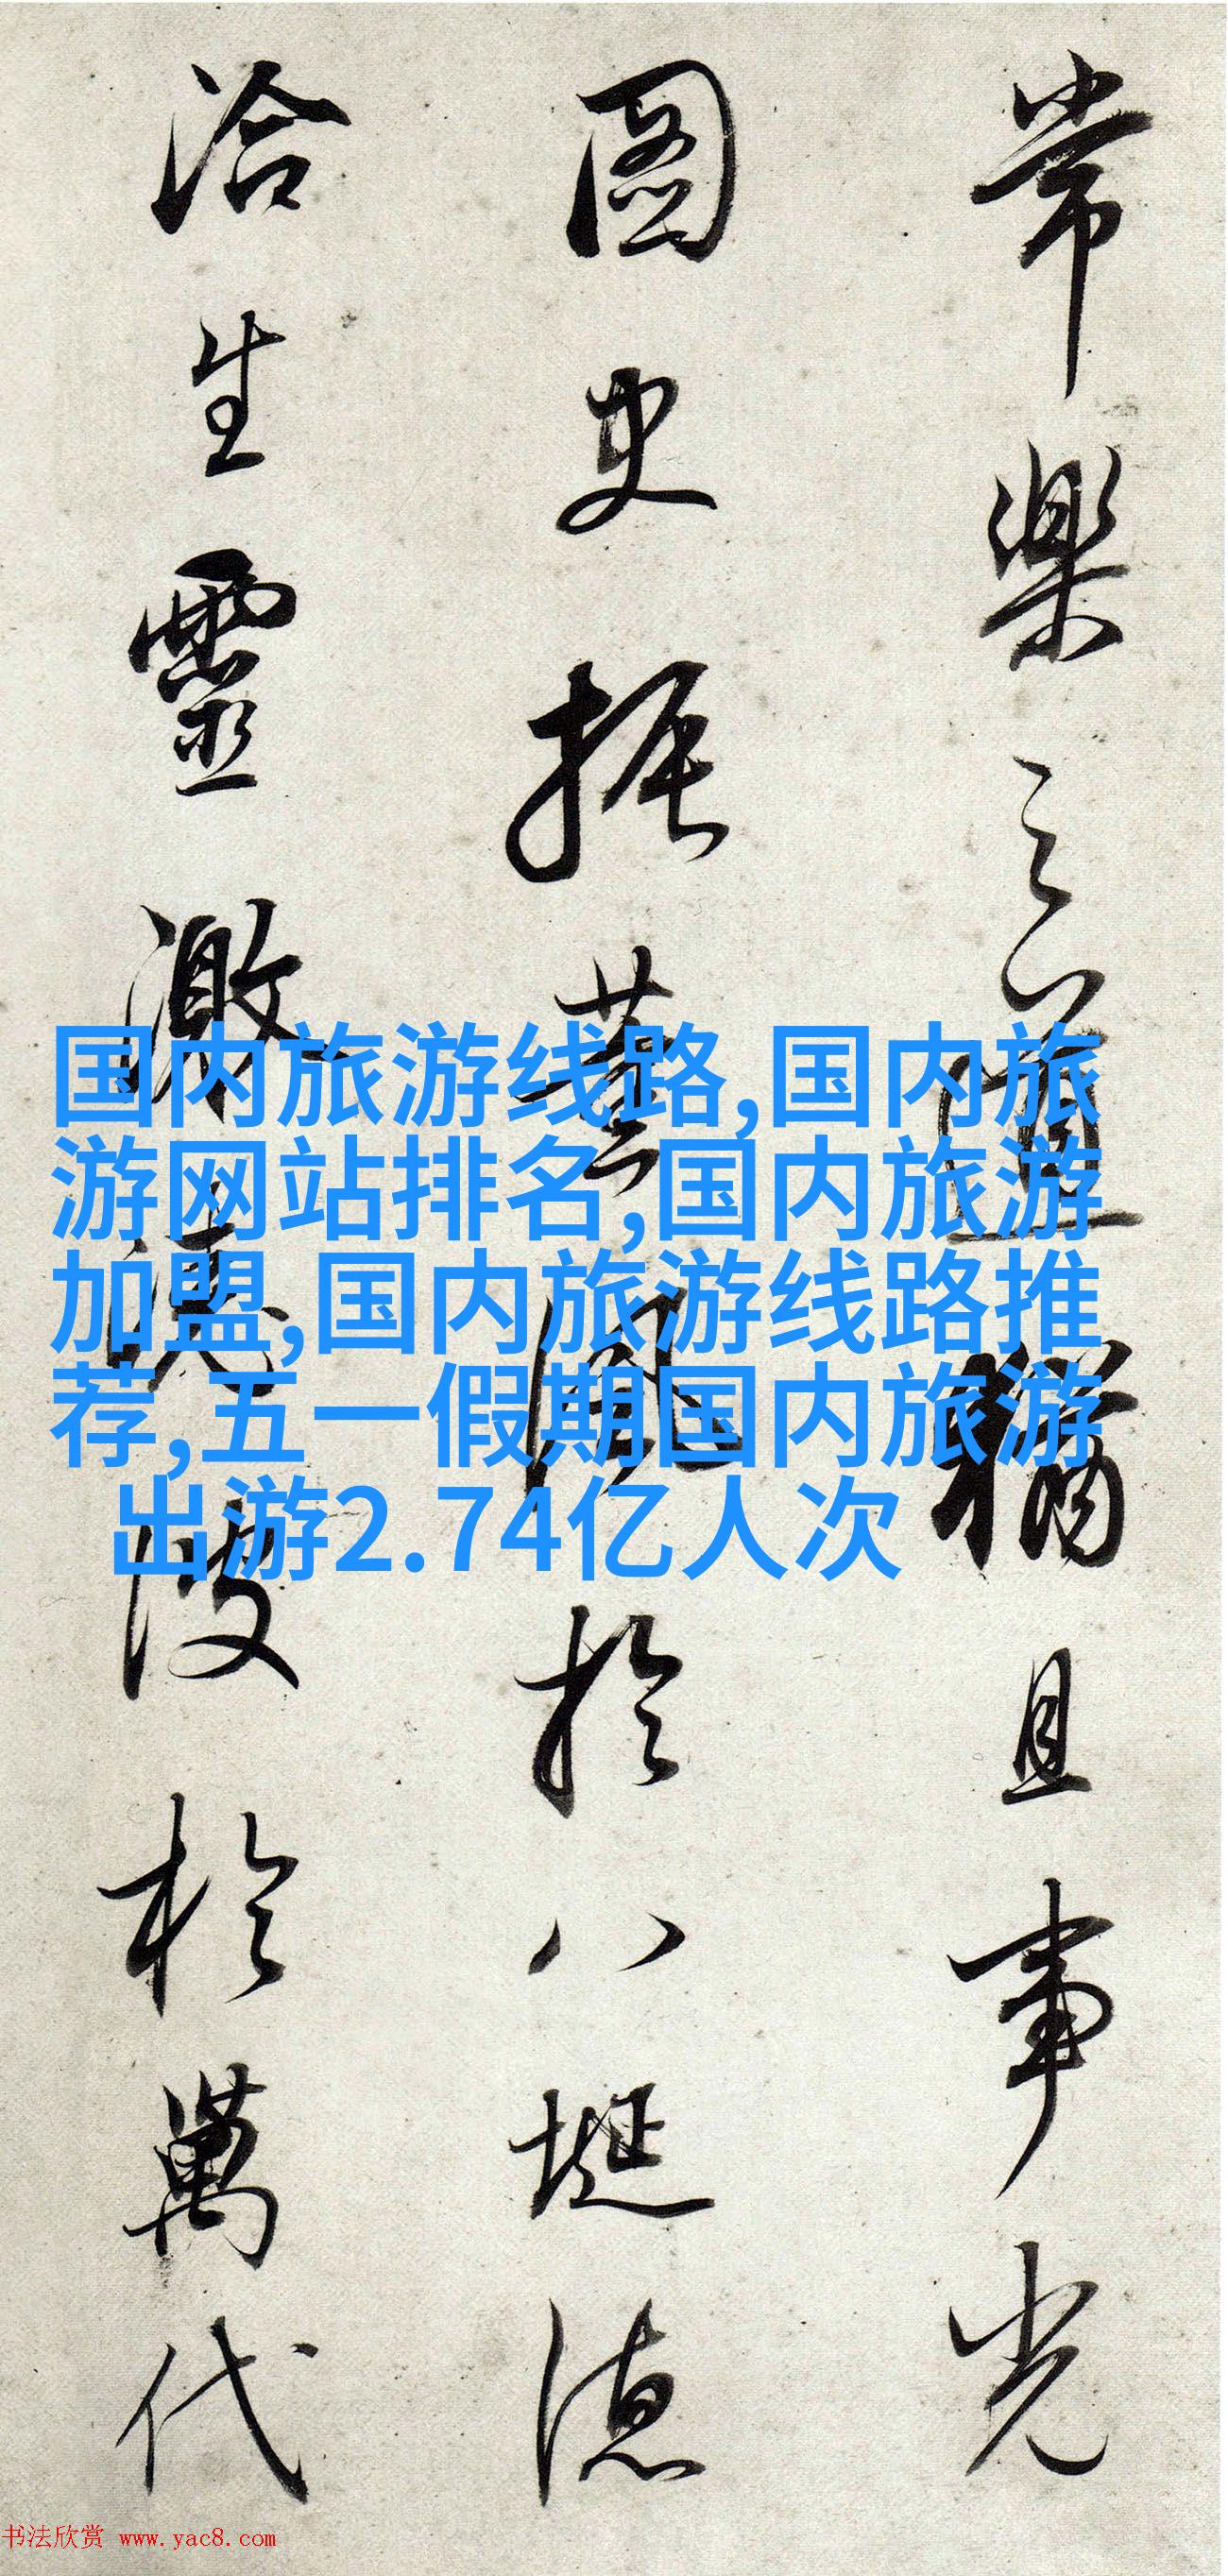 常樂之道猶且事光
圖史振芸風於八埏德
洽生靈激清波於萬代
国内旅游线路,国内旅
游网站排名,国内旅游
加盟,国内旅游线路推
荐,五一假期国内旅游
出游2.74亿人次
书法欣赏 www.yac8.com